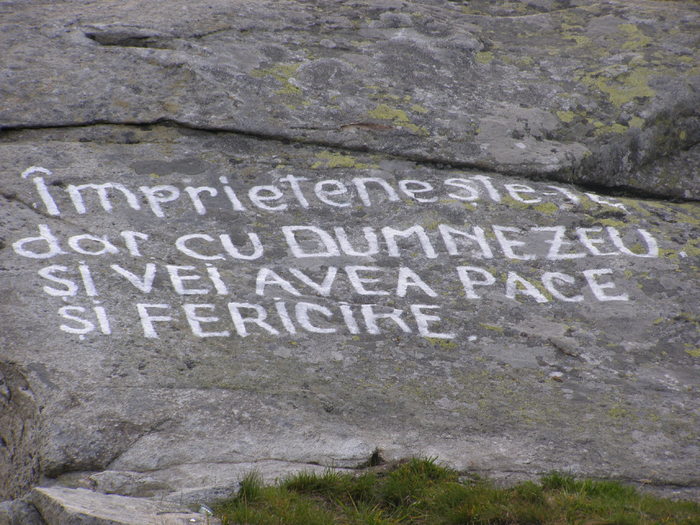 Împrieteneste-te
dar cu DUMNEZEU,
și VEi AVEA PACE
și FERiCiRE.